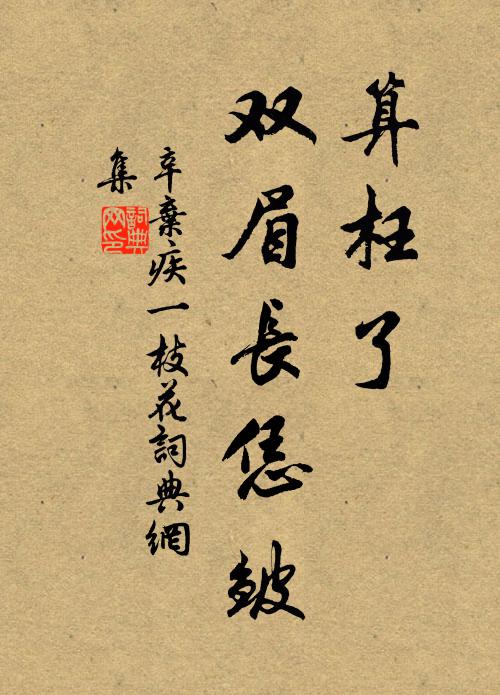 算枉了
双眉長恁皺
辛棄疾一枝花詞典網
集
詞典
网印